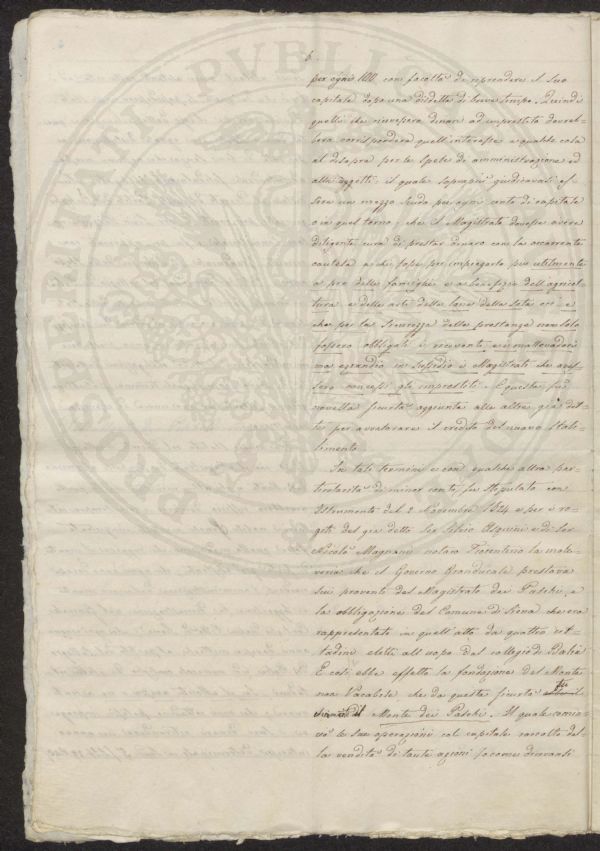 6
per ogni 100 con facoltà di riprendere il suo
capitale dopo una disdetta di breve tempo. Quindi
quelli che ricevessero denari ad imprestito dovreb-
bero corrispondere quell'interesse e qualche cosa
al disopra per le spese di amministrazione ed
altri oggetti: il quale soprapiù giudicavasi es-
sere un mezzo scudo per ogni cento di capitale
o in quel torno; che il Magistrato dovesse avere
diligente cura di prestar denaro con la occorrente
cautela e che fosse per impiegarlo più utilmente
a pro delle famiglie e a benefizio dell'agricol-
tura e delle arti della lana della seta ecc. e
che per la sicurezza delle prestanze non solo
fossero obbligati i riceventi e i mallevadori
ma eziandio in sussidio i Magistrati che avis-
sero concessi gli imprestiti. E questa fu
novella sicurtà aggiunta alle altre già det-
te per avvalorare il credito del nuovo stabi-
limento.
In tali termini e con qualche altra par-
ticolarità di minor conto, fu stipulato con
Istrumento del 2 Novembre 1624 e per i ro-
giti del già detto Ser Livio e di Ser
Niccolò Magnani notaro Fiorentino la malle-
veria che il Governo Granducale prestava
sui proventi del Magistrato dei Paschi, e
la obbligazione del Comune di Siena che era
rappresentato in quell'atto da quattro cit-
tadini eletti all'uopo dal collegio di Balìa
E così ebbe effetto la fondazione del Monte
non Vacabile che da questa sicurtà
Monte dei Paschi. Il quale comin-
ciò le sue operazioni col capitale raccolto dal-
la vendita di tante azioni siccome dicevansi